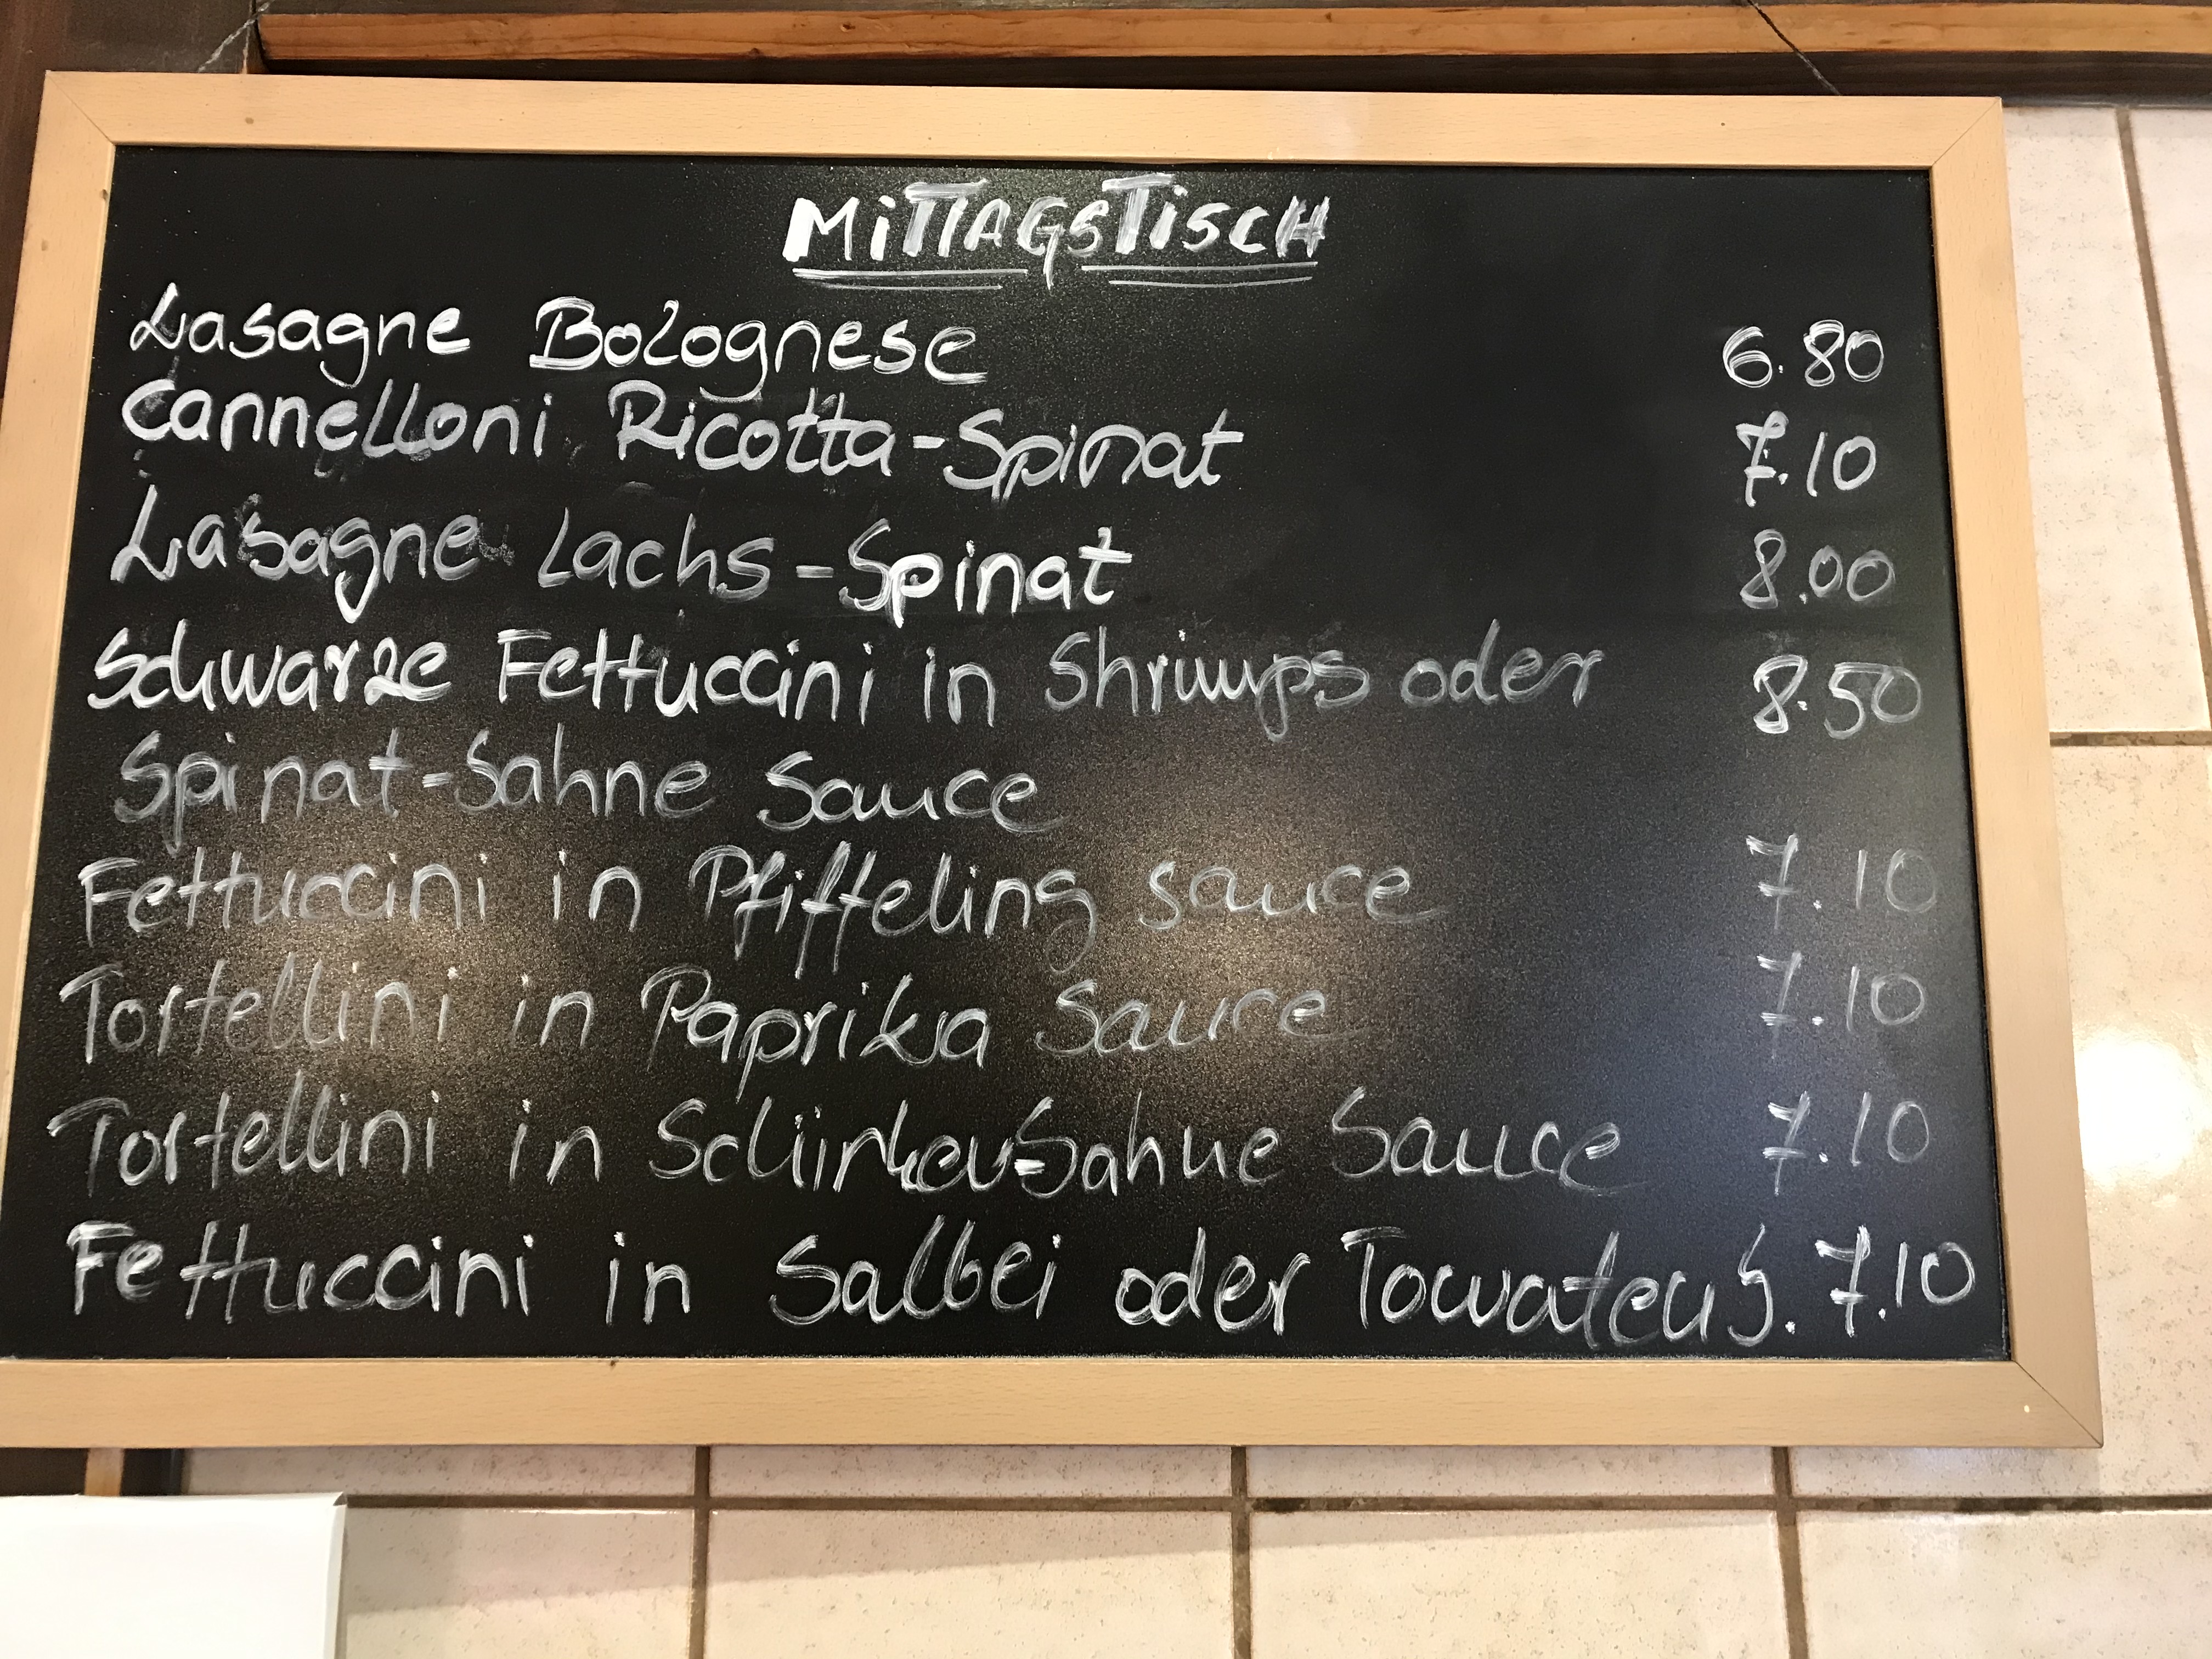 MiTTAGSTiSCH
Lasagne Bolognese 6.80
Cannelloni Ricotta-Spinat 7.10
Lasagne Lachs-Spinat 8.00
Schwarze Fettuccini in Shrimps oder 8.50
Spinat-Sahne Sauce
Fettuccini in Pfiffeling sauce 7.10
Tortellini in Paprika Sauce 7.10
Tortellini in Schinken-Sahne Sauce 7.10
Fettuccini in Salbei oder Tomaten S. 7.10